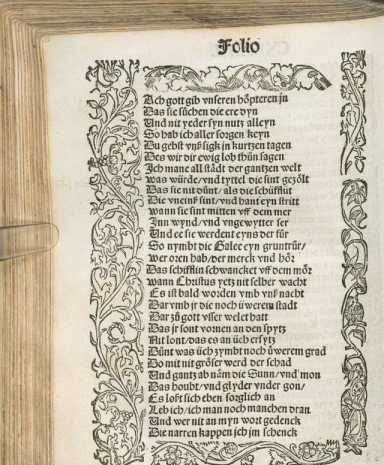 Folio
Ach gott gib vnseren höpteren jn
Das sie süchen die ere dyn
Vnd nit yeder syn nutz alleyn
So hab ich aller sorgen keyn
Du gebst vnß sigk in kurtzen tagen
Des wir dir ewig lob thün sagen
Ich mane all städt der gantzen welt
was würde/ vnd tyttel die sint gezölt
Das sie nit dünt/ als die schüflüt
Die vneinß sint/ vnd hant eyn stritt
wann sie sint mitten vff dem mer
Inn wynd/ vnd vngewytter ser
Vnd ee sie werdent eyns der für
So nymbt die Galee eyn gruntrür/
wer oren hab/ der merck vnd hör
Das schifflin schwancket vff dem mör
wann Christus yetz nit selber wacht
Es ist bald worden vmb vnß nacht
Dar vmb jr die noch üwerem stadt
Dar zü gott vsser welet hatt
Das jr sont vornen an den spytz
Nit lont/ das es an üch ersytz
Dünt was üch zymbt noch üwerem grad
Do mit nit gröser werd der schad
Vnd gantz ab näm die Sunn/ vnd mon
Das houbt/ vnd glyder vnder gon/
Es loßt sich eben sorglich an
Leb ich/ ich man noch manchen dran
Vnd wer nit an myn wort gedenck
Die narren kappen ich jm schenck